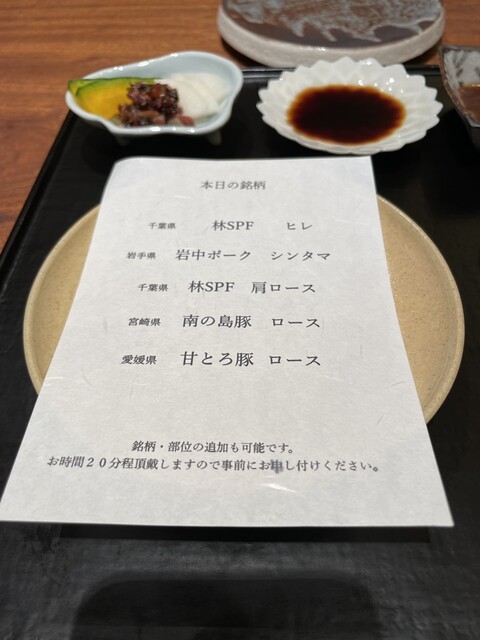 本日の銘柄
千葉県 林SPF ヒレ
岩手県 岩中ポーク シンタマ
千葉県 林SPF 肩ロース
宮崎県 南の島豚 ロース
愛媛県 甘とろ豚 ロース
銘柄・部位の追加も可能です。
お時間２０分程頂戴しますので事前にお申し付けください。